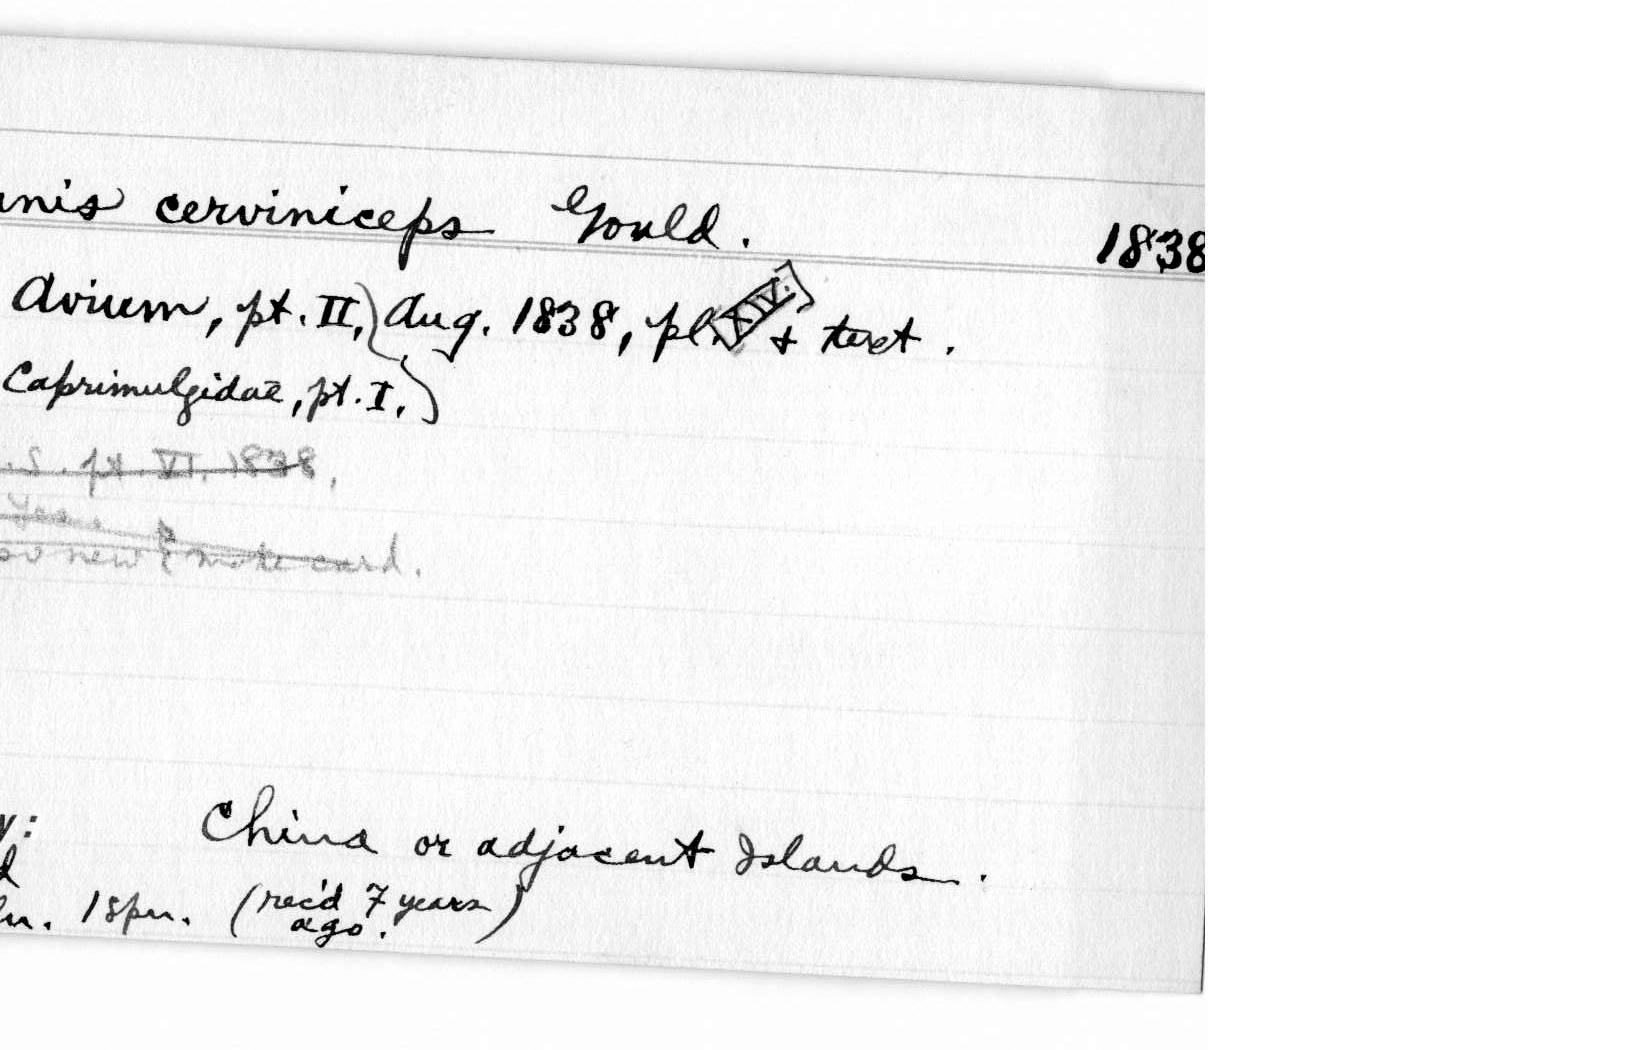 nis cerviniceps Gould.
1838
Avium, pt. II,) Aug. 1838, pl. [XIV.] + text.
Caprimulgidae, pt. I,)
.S. pt. VI, 1838,
new & make card.
y: China or adjacent Islands.
d
1 spn. (rec'd 7 years
ago.)